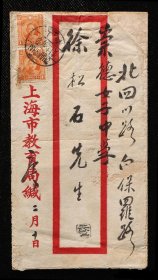 北四川路白保羅路
崇德女子中学
徐松石先生
上海市教育局緘
二月一日